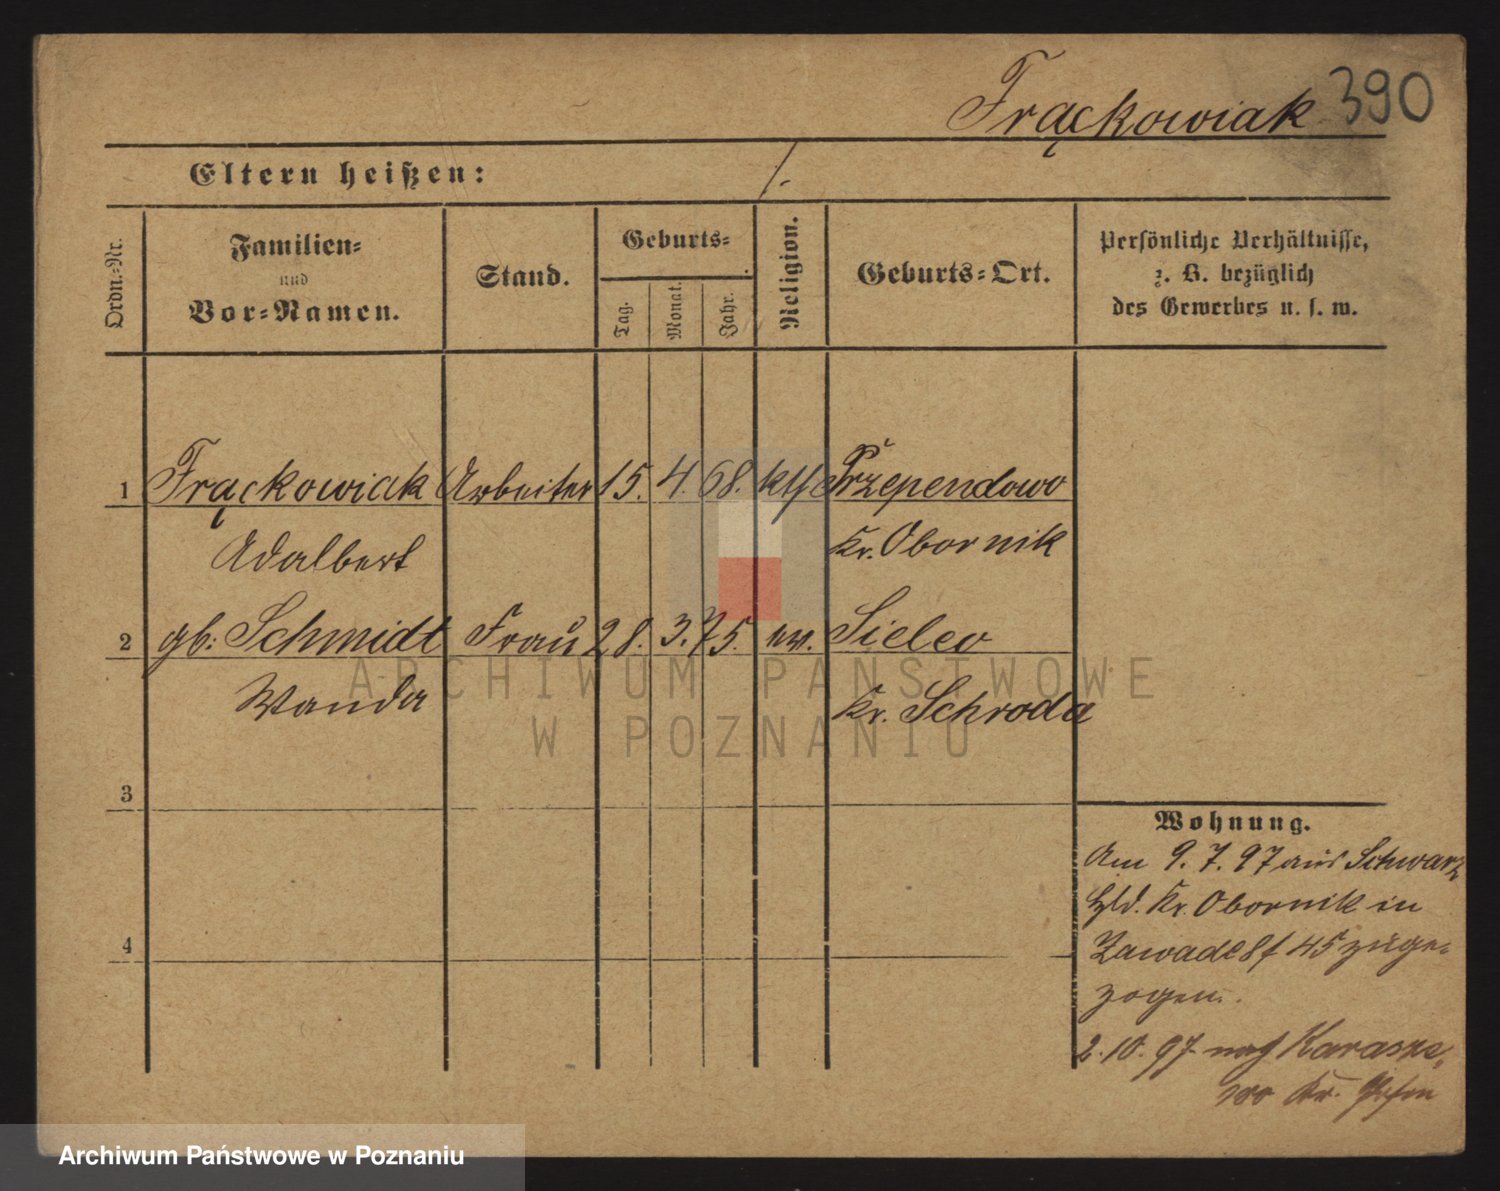 Frąckowiak 390
Eltern heißen: /.
Ordn.-Nr.
Familien-
und
Vor-Namen.
Stand.
Geburts-
Tag.
Monat.
Jahr.
Religion.
Geburts-Ort.
Persönliche Verhältnisse,
z. B. bezüglich
des Gewerbes u. s. w.
1 Frąckowiak Arbeiter 15. 4. 68. kth Przependowo
Adalbert Kr. Obornik
2 gb: Schmidt Frau 28. 3. 75. ev.
Wanda Kr. Schroda
3
4
Wohnung.
Am 9. 7. 97 aus Schwarz
hld. Kr. Obornik in
Zawade 45 zuge-
zogen.
2. 10. 97 nach
Kr. Posen
ARCHIWUM PAŃSTWOWE
W POZNANIU
Archiwum Państwowe w Poznaniu